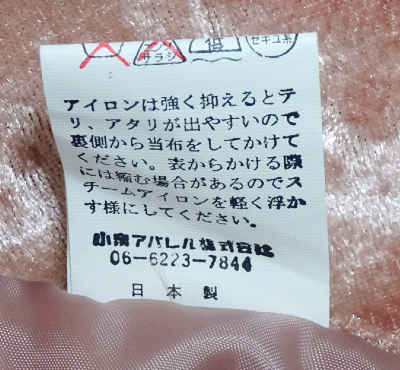 エンソ
サラシ
低
セキユ系
アイロンは強く抑えるとテ
リ、アタリが出やすいので
裏側から当布をしてかけて
ください。表からかける際
には縮む場合があるのでス
チームアイロンを軽く浮か
す様にしてください。
小泉アパレル株式会社
06-6223-7844
日本製